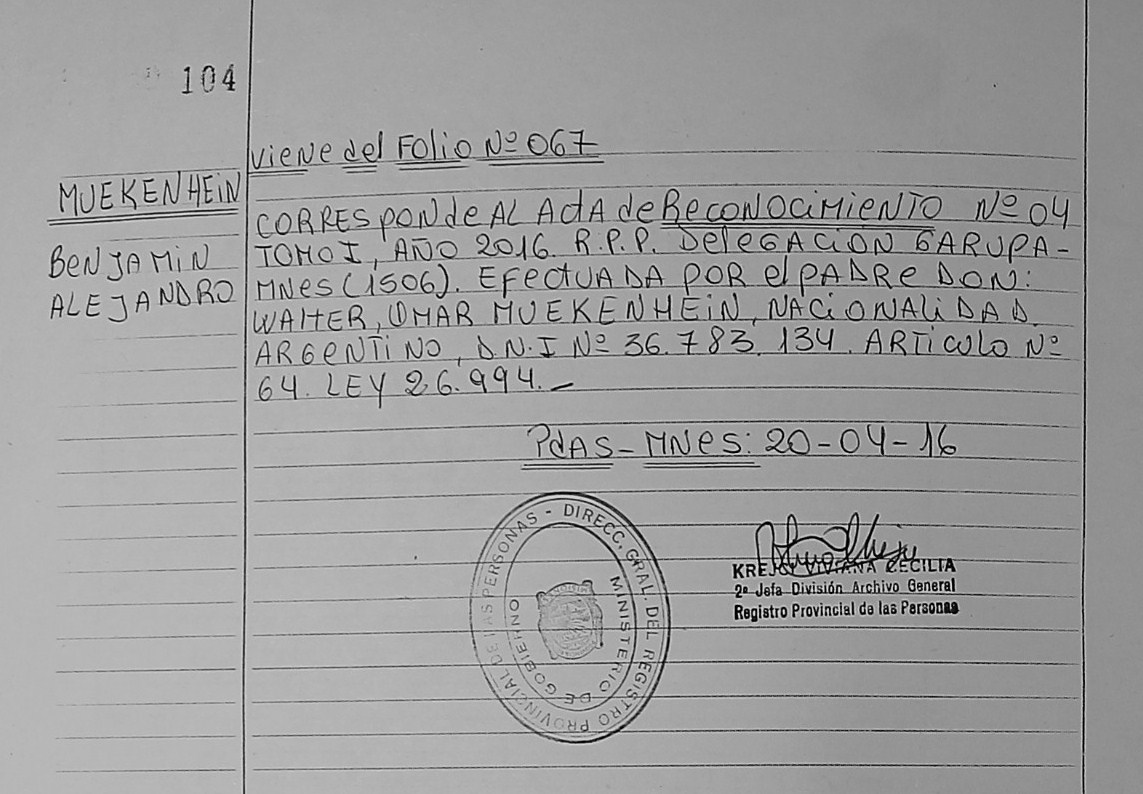 104
Viene del Folio Nº 067
MUEKENHEIN
BENJAMIN
ALEJANDRO
CORRESPONDE AL ACTA de RECONOCIMIENTO Nº 04
TOMO I, AÑO 2016. R.P.P. DELEGACION GARUPA-
MNES (1506). EFECTUADA POR el PADRE DON:
WALTER, OMAR MUEKENHEIN, NACIONALIDAD
ARGENTINO, D.N.I Nº 36.783.134. ARTICULO Nº
64. LEY 26.994.-
PdAS-MNES: 20-04-16
DIRECC. GRAL. DEL REGISTRO PROVINCIAL DE LAS PERSONAS -
MINISTERIO DE GOBIERNO
VIVIANA CECILIA
2º Jefa División Archivo General
Registro Provincial de las Personas